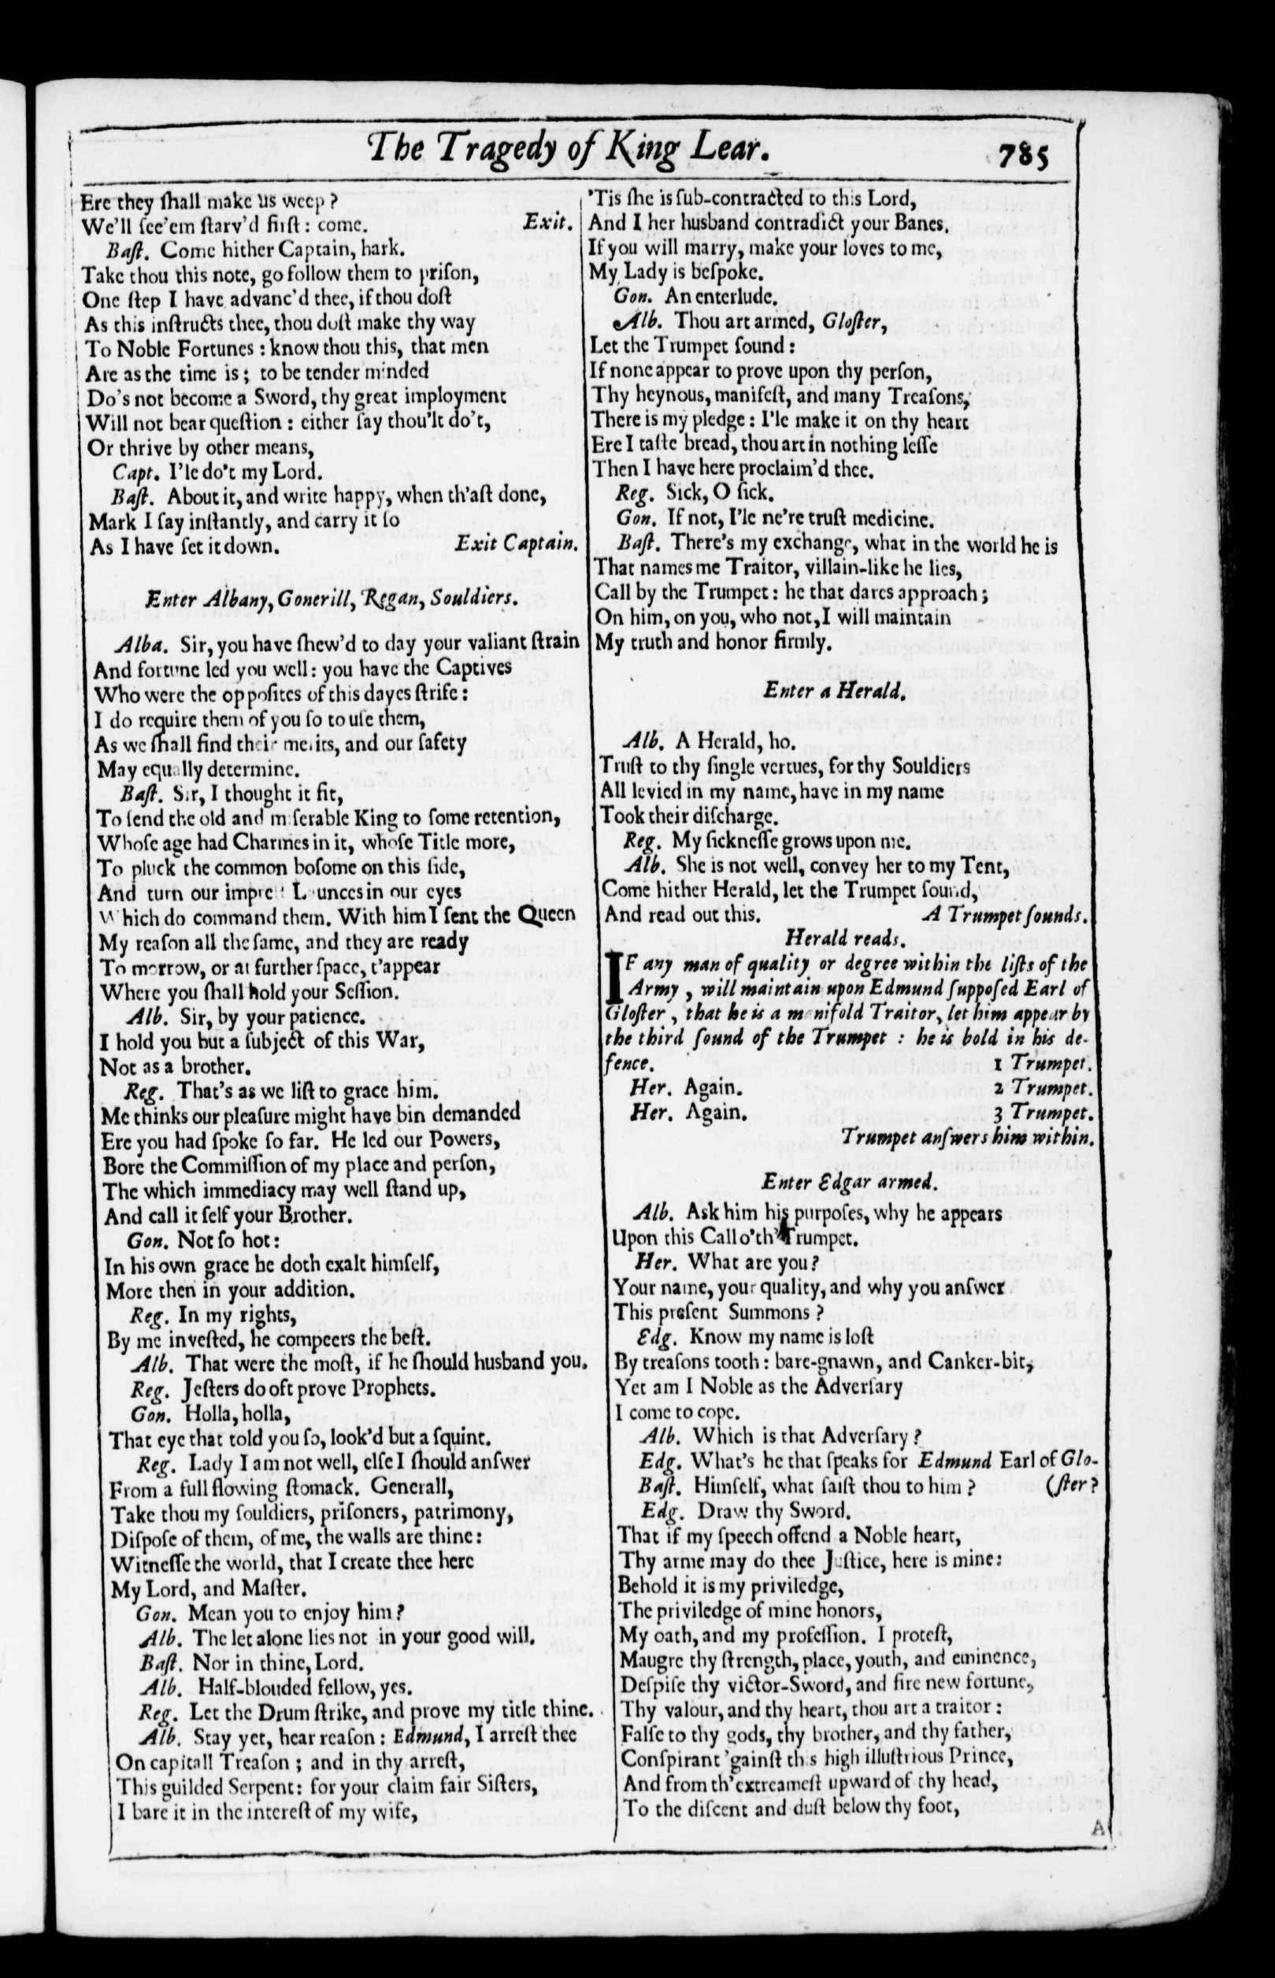 The Tragedy of King Lear. 785
Ere they ſhall make us weep?
We'll ſee'em ſtarv'd firſt: come. Exit.
Baſt. Come hither Captain, hark.
Take thou this note, go follow them to priſon,
One ſtep I have advanc'd thee, if thou doſt
As this inſtructs thee, thou doſt make thy way
To Noble Fortunes: know thou this, that men
Are as the time is; to be tender minded
Do's not become a Sword, thy great imployment
Will not bear queſtion: either ſay thou'lt do't,
Or thrive by other means,
Capt. I'le do't my Lord.
Baſt. About it, and write happy, when th'aſt done,
Mark I ſay inſtantly, and carry it ſo
As I have ſet it down. Exit Captain.
Enter Albany, Gonerill, Regan, Souldiers.
Alba. Sir, you have ſhew'd to day your valiant ſtrain
And fortune led you well: you have the Captives
Who were the oppoſites of this dayes ſtrife:
I do require them of you ſo to uſe them,
As we ſhall find their merits, and our ſafety
May equally determine.
Baſt. Sir, I thought it fit,
To ſend the old and miſerable King to ſome retention,
Whoſe age had Charmes in it, whoſe Title more,
To pluck the common boſome on this ſide,
And turn our impreſt Launces in our eyes
Which do command them. With him I ſent the Queen
My reaſon all the ſame, and they are ready
To morrow, or at further ſpace, t'appear
Where you ſhall hold your Seſſion.
Alb. Sir, by your patience.
I hold you but a ſubject of this War,
Not as a brother.
Reg. That's as we liſt to grace him.
Me thinks our pleaſure might have bin demanded
Ere you had ſpoke ſo far. He led our Powers,
Bore the Commiſſion of my place and perſon,
The which immediacy may well ſtand up,
And call it ſelf your Brother.
Gon. Not ſo hot:
In his own grace he doth exalt himſelf,
More then in your addition.
Reg. In my rights,
By me inveſted, he compeers the beſt.
Alb. That were the moſt, if he ſhould husband you.
Reg. Jeſters do oft prove Prophets.
Gon. Holla, holla,
That eye that told you ſo, look'd but a ſquint.
Reg. Lady I am not well, elſe I ſhould anſwer
From a full flowing ſtomack. Generall,
Take thou my ſouldiers, priſoners, patrimony,
Diſpoſe of them, of me, the walls are thine:
Witneſſe the world, that I create thee here
My Lord, and Maſter.
Gon. Mean you to enjoy him?
Alb. The let alone lies not in your good will.
Baſt. Nor in thine, Lord.
Alb. Half-blouded fellow, yes.
Reg. Let the Drum ſtrike, and prove my title thine.
Alb. Stay yet, hear reaſon: Edmund, I arreſt thee
On capitall Treaſon; and in thy arreſt,
This guilded Serpent: for your claim fair Siſters,
I bare it in the intereſt of my wife,
'Tis ſhe is ſub-contracted to this Lord,
And I her husband contradict your Banes.
If you will marry, make your loves to me,
My Lady is beſpoke.
Gon. An enterlude.
Alb. Thou art armed, Gloſter,
Let the Trumpet ſound:
If none appear to prove upon thy perſon,
Thy heynous, manifeſt, and many Treaſons,
There is my pledge: I'le make it on thy heart
Ere I taſte bread, thou art in nothing leſſe
Then I have here proclaim'd thee.
Reg. Sick, O ſick.
Gon. If not, I'le ne're truſt medicine.
Baſt. There's my exchange, what in the world he is
That names me Traitor, villain-like he lies,
Call by the Trumpet: he that dares approach;
On him, on you, who not, I will maintain
My truth and honor firmly.
Enter a Herald.
Alb. A Herald, ho.
Truſt to thy ſingle vertues, for thy Souldiers
All levied in my name, have in my name
Took their diſcharge.
Reg. My ſickneſſe grows upon me.
Alb. She is not well, convey her to my Tent,
Come hither Herald, let the Trumpet ſound,
And read out this. A Trumpet ſounds.
Herald reads.
IF any man of quality or degree within the liſts of the
Army, will maintain upon Edmund ſuppoſed Earl of
Gloſter, that he is a manifold Traitor, let him appear by
the third ſound of the Trumpet: he is bold in his de-
fence. 1 Trumpet.
Her. Again. 2 Trumpet.
Her. Again. 3 Trumpet.
Trumpet anſwers him within.
Enter Edgar armed.
Alb. Ask him his purpoſes, why he appears
Upon this Call o'th' Trumpet.
Her. What are you?
Your name, your quality, and why you anſwer
This preſent Summons?
Edg. Know my name is loſt
By treaſons tooth: bare-gnawn, and Canker-bit,
Yet am I Noble as the Adverſary
I come to cope.
Alb. Which is that Adverſary?
Edg. What's he that ſpeaks for Edmund Earl of Glo-
Baſt. Himſelf, what ſaiſt thou to him? (ſter?
Edg. Draw thy Sword.
That if my ſpeech offend a Noble heart,
Thy arme may do thee Juſtice, here is mine:
Behold it is my priviledge,
The priviledge of mine honors,
My oath, and my profeſſion. I proteſt,
Maugre thy ſtrength, place, youth, and eminence,
Deſpiſe thy victor-Sword, and fire new fortune,
Thy valour, and thy heart, thou art a traitor:
Falſe to thy gods, thy brother, and thy father,
Conſpirant 'gainſt this high illuſtrious Prince,
And from th'extreameſt upward of thy head,
To the diſcent and duſt below thy foot,
A